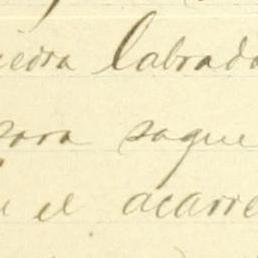 iedra labrada
para saque
el acarre